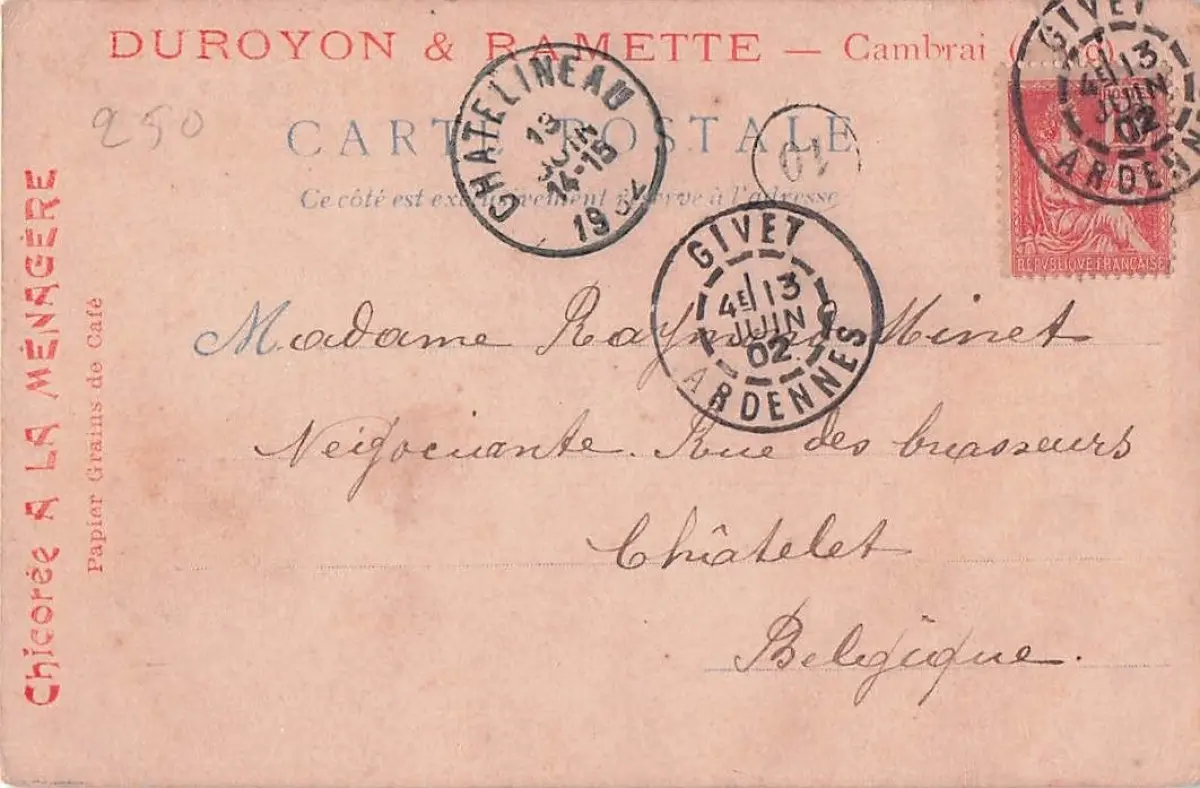 DUROYON & RAMETTE — Cambrai
GIVET
4E 13
JUIN
02
ARDENNES
POSTES
REPVBLIQVE FRANÇAISE
250
CARTE POSTALE
Ce côté est exclusivement réservé à l'adresse
CHATELINEAU
13
JUIN
14-15
19
10
GIVET
4E 13
JUIN
02
ARDENNES
Madame Raymond Minet
Neigociante. Rue des brasseurs
Châtelet
Belgique.
Chicorée A LA MÉNAGÈRE
Papier Grains de Café